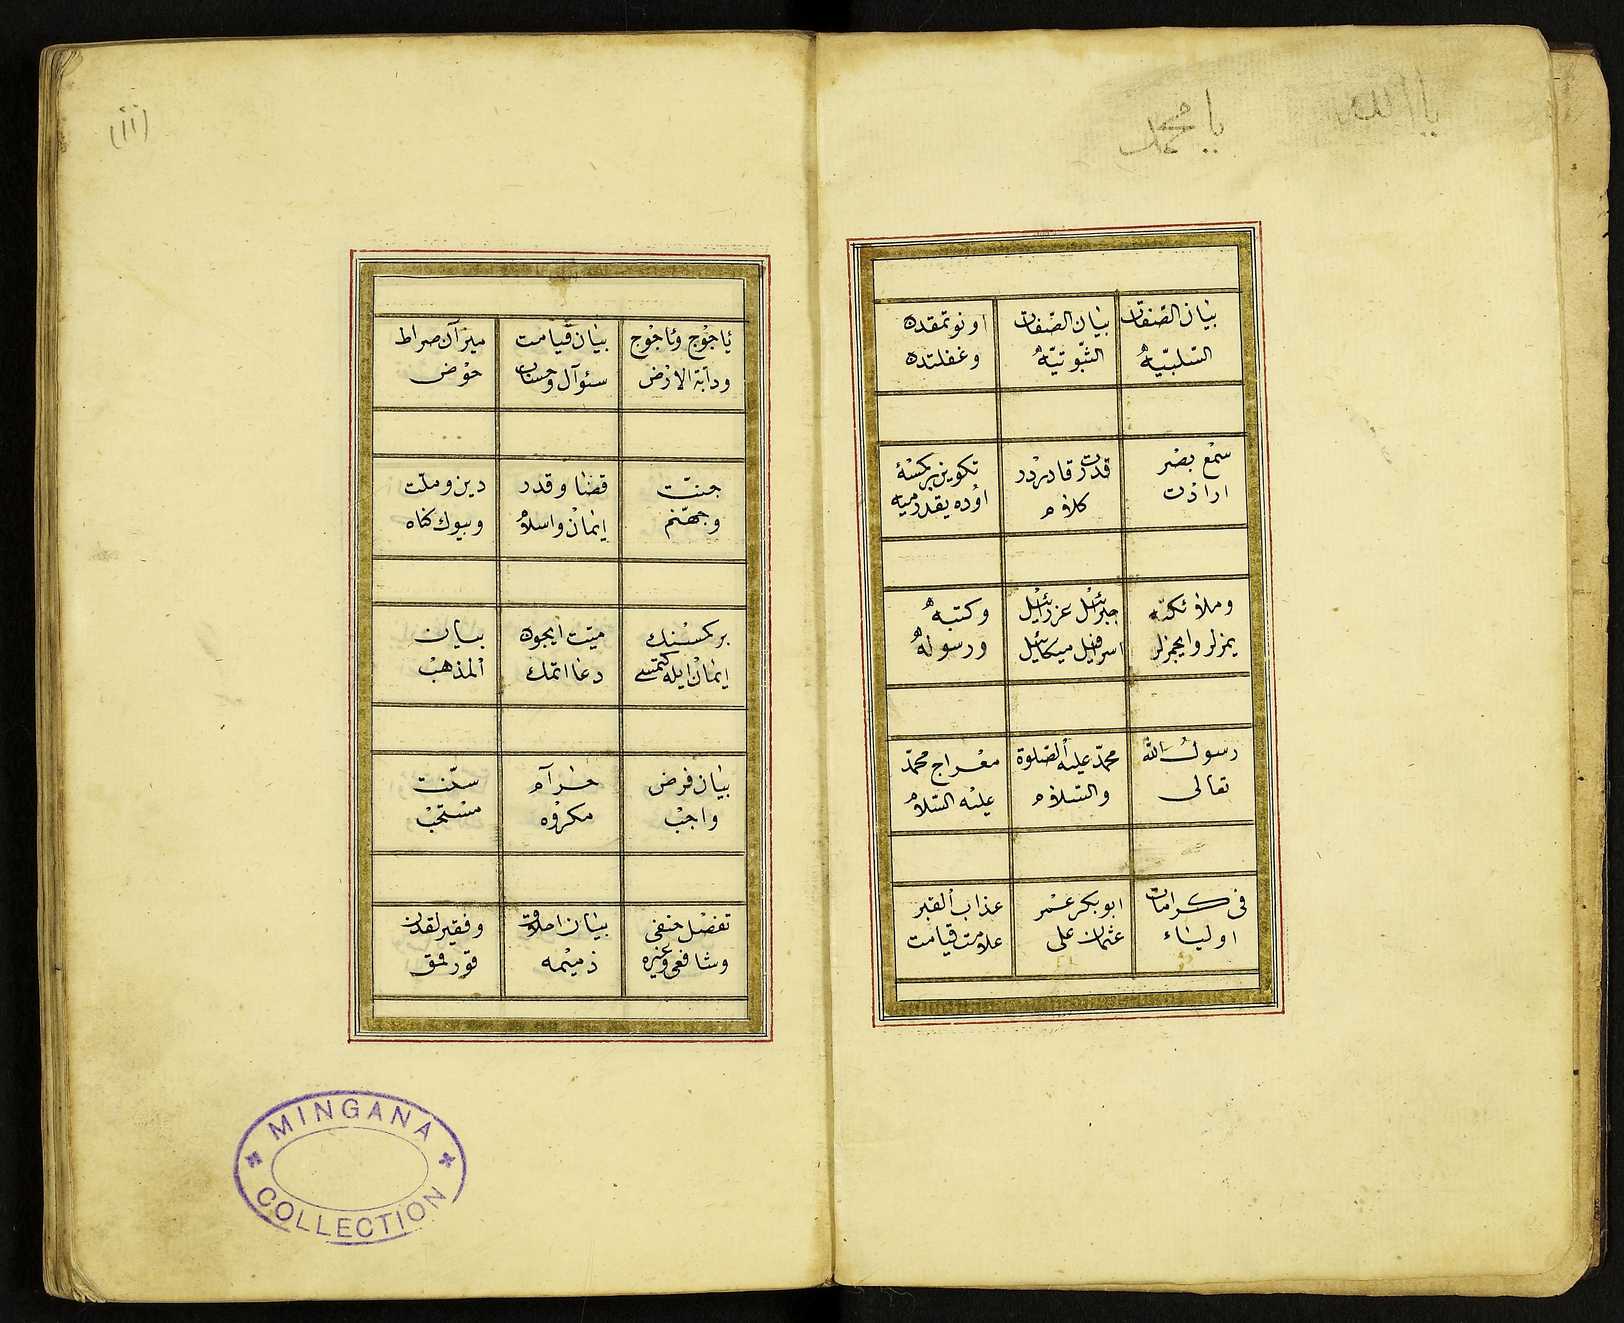 يا الله
يا محمد
بيان الصفات
السلبيّه
بيان الصفات
الثبوتيّه
اونوتمقده
وغفلتده
سمع بصر
ارادت
قدرت قادردر
كلام
تكوين بركسنه
اوده يقدرميه
وملائكته
يمزلر وايچمزلر
جبرائيل عزرائيل
اسرافيل ميكائيل
وكتبه
ورسوله
رسول الله
تعالى
محمّد عليه الصّلوة
والسّلام
معراج محمّد
عليه السّلام
فى كرامات
اولياء
ابو بكر عمر
عثمان على
عذاب القبر
علامت قيامت
(ii)
ياجوج وماجوج
ودابّة الارض
بيان قيامت
سئوآل وحساب
ميزآن صراط
حوض
جنّت
وجهنّم
قضا وقدر
ايمان واسلام
دين وملّت
وبيوك كناه
بر كمسنك
ايمان ايله كتمسى
ميّت ايچون
دعا اتمك
بيان
المذهب
بيان فرض
واجب
حرآم
مكروه
سنّت
مستحب
تفضل حنفى
وشافعى وغيره
بيان اخلاق
ذميمه
وفقيرلقدن
قورقمق
MINGANA
COLLECTION